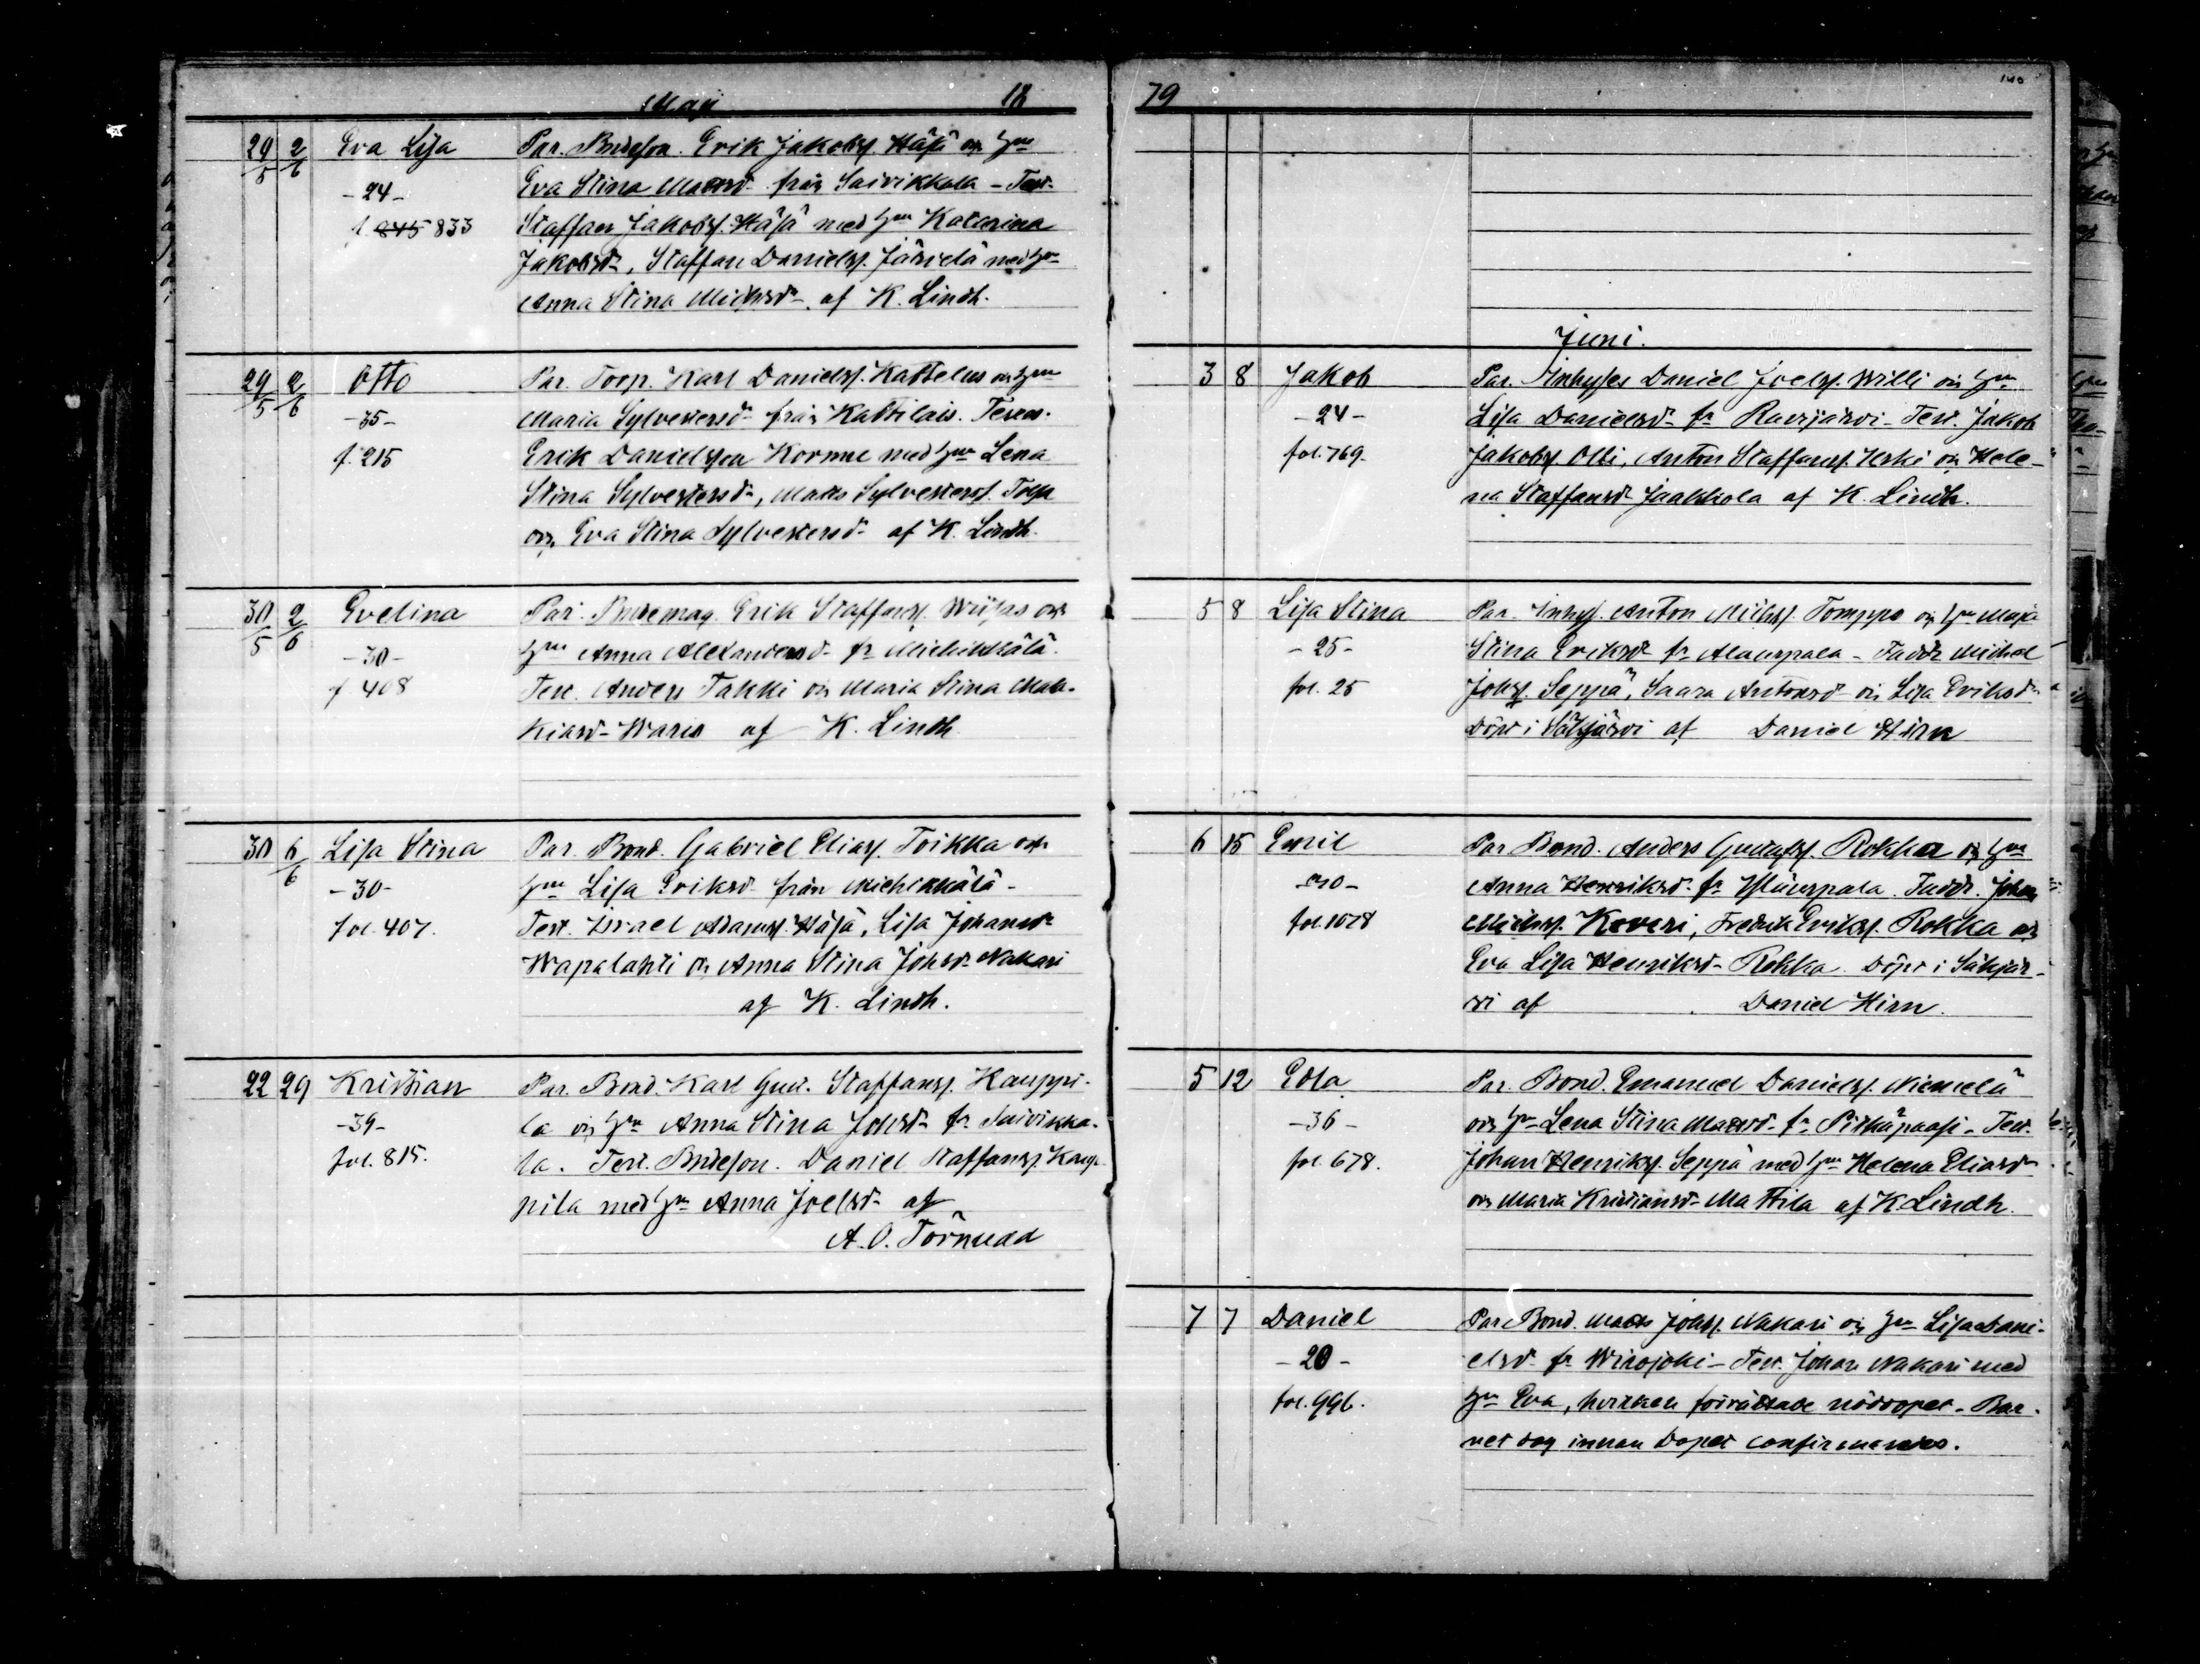 Maji 18
29/5 2/6 Eva Lisa Par. Bondeson. Erik Jakobss. Häsä och Hu
-24- Eva Stina Matsd. från Saivikkala - Test.
f. 845 833 Staffan Jakobss. Häsä med Hu Katarina
Jakobsd., Staffan Danielss. Järvelä med Hu
Anna Stina Michelsd. af K. Lindh.
29/5 2/6 Otto Par. Torp. Karl Danielss. Kattelus och Hu
-35- Maria Sylvestersd. från Kattilais. Testes.
f. 215 Erik Danielsson Kormu med Hu Lena
Stina Sylvestersd., Mats Sylvesterss.
och Eva Stina Sylvestersd. af K. Lindh.
30/5 2/6 Evelina Par. Bondemåg. Erik Staffanss. och
-30- Hu Anna Alexandersd. fr. Miehikkälä.
f 408 Test. Anders Takki och Maria Stina Mala-
kiasd. Waris af K. Lindh
30 6/6 Lisa Stina Par. Bond. Gabriel Eliass. Toikka och
-30- Hu Lisa Eriksd. från Miehikkälä -
fol. 407. Test. Israel Adamss. Häsä, Lisa Johansd.
Wapalahti och Anna Stina Johsd. Nakari
af K. Lindh.
22 29 Kristian Par. Bond. Karl Gust. Staffanss. Kauppi-
-39- la och Hu Anna Stina Johsd. fr. Saivikka-
fol. 815. la. Test. Bondeson. Daniel Staffanss. Kaup-
pila med Hu Anna Joelsd. af
A. O. Törnudd
79
140
Juni.
3 8 Jakob Par. Inhyses Daniel Joelss. Willi och Hu
-24- Lisa Danielsd. fr. Ravijärvi - Test. Jakob
fol. 769. Jakobss. Olli, Anton Staffanss. Uski och Hele-
na Staffansd. Jaakkola af K. Lindh.
5 8 Lisa Stina Par. Inhys. Anton Michelss. Tomppo och Hu Maja
-25- Stina Eriksd. fr. Alaurpala - Faddr. Michel
fol. 25 Johss. Seppä, Saara Antonsd. och Lisa Eriksd.
Döpt i Säkjärvi af Daniel Hirn
6 15 Emil Par Bond. Anders Gustafss. Rokka och Hu
Anna Henriksd. fr. Yläurpala. Faddr. Johan
fol. 1078 Michelss. Keveri, Fredrik Erikss. Rokka och
Eva Lisa Henriksd. Rokka. Döpt i Säkjär-
vi af Daniel Hirn.
5 12 Edla Par. Bond. Emanuel Danielss. Niemelä
-36- och Hu Lena Stina Matsd. fr. Pitkäpaasi - Test.
fol. 678. Johan Henrikss. Seppä med Hu Helena Eliasd.
och Maria Kristiansd. Mattila af K. Lindh.
7 7 Daniel Par Bond. Mats Johss. Nakari och Hu Lisa Dani-
-20- elsd. fr. Wirojoki - Test. Johan Nakari med
fol. 996. Hu Eva, hvilken förrättade nöddopet - Bar-
net dog innan Dopet confirmerades.